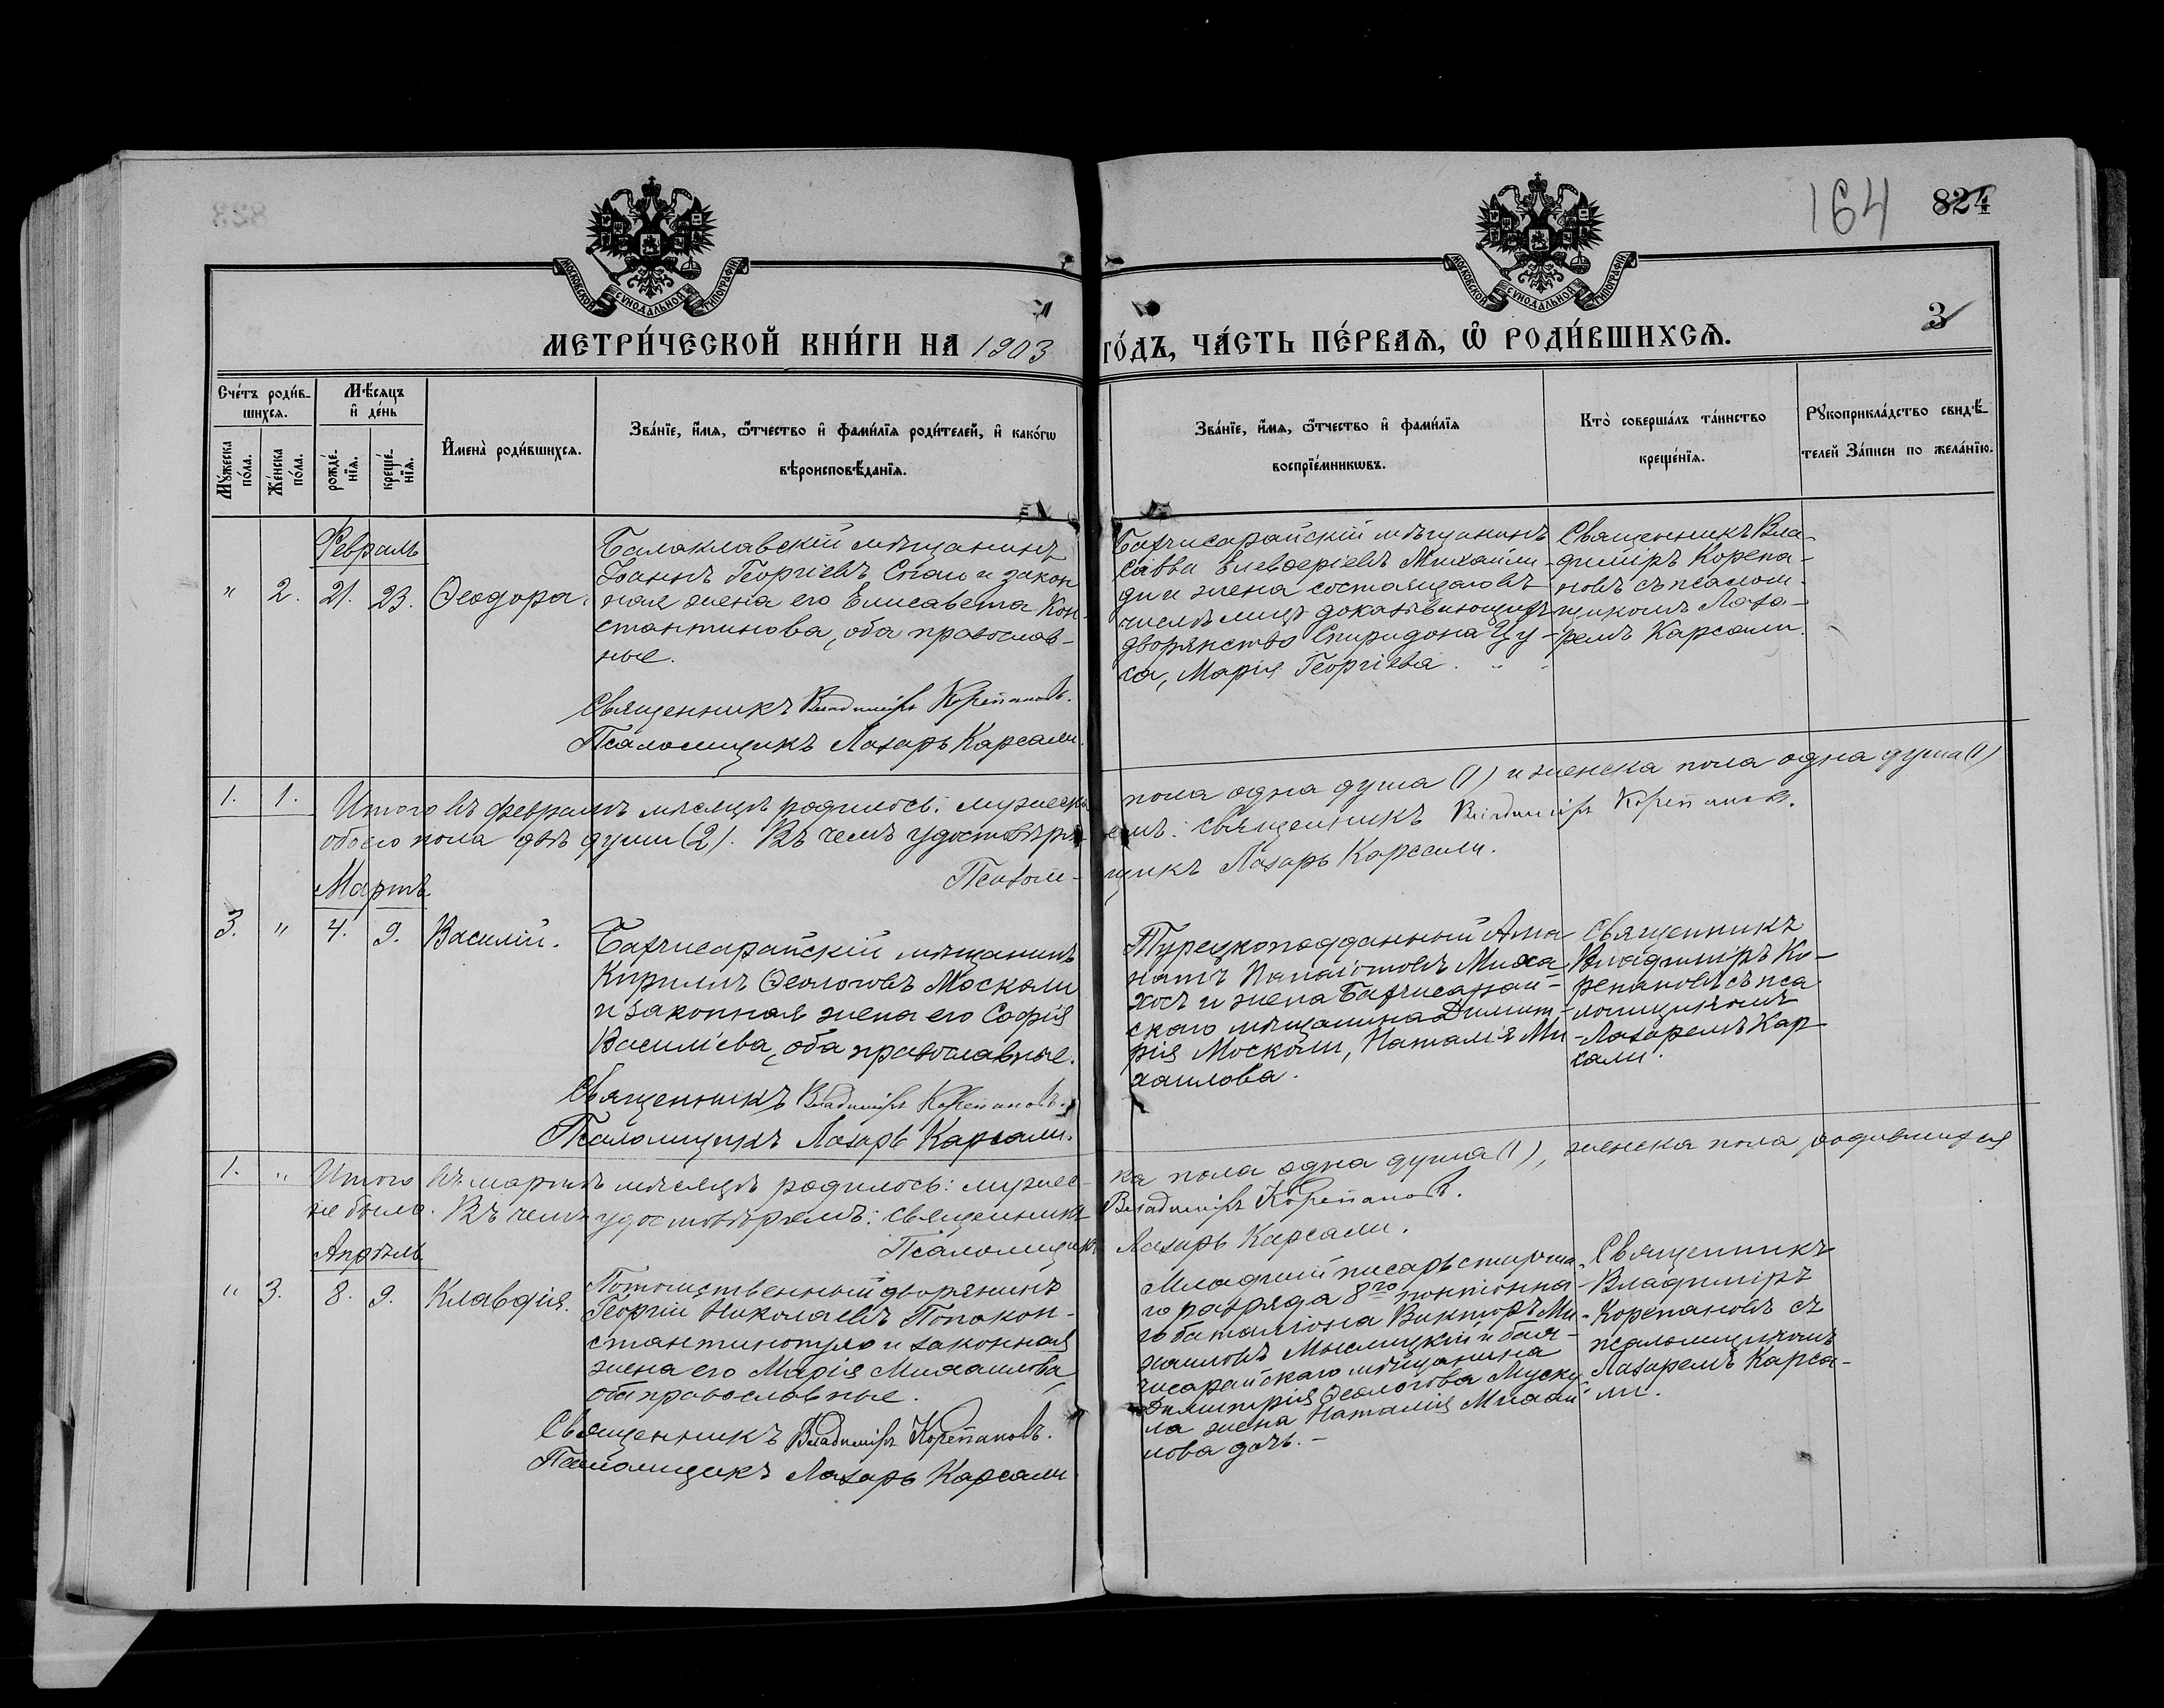 164 824
МОСКОВСКОЙ СУНОДАЛЬНОЙ ТИПОГРАФІИ
МОСКОВСКОЙ СУНОДАЛЬНОЙ ТИПОГРАФІИ
3
МЕТРИ́ЧЕСКОЙ КНИ́ГИ НА 1903 ГО́ДЪ, ЧА́СТЬ ПЕ́РВАѦ, Ѡ҆ РОДИ́ВШИХСѦ.
Сче́тъ роди́в-
шихсѧ.
Мꙋ́жеска по́ла.
Же́нска по́ла.
Мѣ́сяцъ
и҆ де́нь
рожде́нїѧ.
креще́нїѧ.
И҆мена̀ роди́вшихсѧ.
Зва́нїе, и҆́мѧ, ѻ҆́тчество и҆ фами́лїѧ роди́телей, и҆ како́гѡ
вѣроисповѣ́данїѧ.
Зва́нїе, и҆́мѧ, ѻ҆́тчество и҆ фами́лїѧ
воспрїе́мникѡвъ.
Кто̀ соверша́лъ та́инство
креще́нїѧ.
Рꙋкоприкла́дство свидѣ́-
телей За́писи по жела́нїю.
Февраль
" 2. 21. 23. Ѳеодора.
Балаклавскій мѣщанинъ
Іоаннъ Георгіевъ Спаи и закон
ная жена его Елисавета Кон-
стантинова, оба православ-
ные.
Священникъ Владиміръ Корепановъ.
Псаломщикъ Лазарь Карсали.
Бахчисарайскій мѣщанинъ
Савва Елевѳеріевъ Михаили-
ди и жена состоящаго въ
числѣ лицъ доказывающихъ
дворянство Спиридона Цу-
га, Марія Георгіева.
Священникъ Вла-
диміръ Корепа-
новъ съ псалом-
щикомъ Лаза-
ремъ Карсали.
1. 1. Итого въ февралѣ мѣсяцѣ родилось: мужеска пола одна душа (1) и женска пола одна душа (1)
обоего пола двѣ души (2). Въ чемъ удостовѣряемъ: Священникъ Владиміръ Корепановъ.
Псалом-щикъ Лазарь Карсали.
Мартъ
3. " 4. 9. Василій.
Бахчисарайскій мѣщанинъ
Кириллъ Ѳеологовъ Москали
и законная жена его Софія
Василіева, оба православные.
Священникъ Владиміръ Корепановъ.
Псаломщикъ Лазарь Карсали.
Турецкоподданный Ама-
натъ Панаіотовъ Миха
хосъ и жена Бахчисарай-
скаго мѣщанина Димит-
рія Москали, Наталія Ми-
хаилова.
Священникъ
Владиміръ Ко-
репановъ съ пса
ломщикомъ
Лазаремъ Кар-
сали.
1. " Итого въ мартѣ мѣсяцѣ родилось: мужес-ка пола одна душа (1), женска пола родившихся
не было. Въ чемъ удостовѣряемъ: Священникъ Владиміръ Корепановъ.
Псаломщикъ Лазарь Карсали.
Апрѣль
" 3. 8. 9. Клавдія.
Потомственный дворянинъ
Георгій Николаевъ Попакон-
стантинопуло и законная
жена его Марія Михаилова,
оба православные.
Священникъ Владиміръ Корепановъ.
Псаломщикъ Лазарь Карсали
Младшій писарь старша-
го разряда 8го понтонна
го баталіона Викторъ Ми-
хаиловъ Мыслицкій и бах-
чисарайскаго мѣщанина
Димитрія Ѳеологова Муска
ла жена Наталія Михаи
лова дочь.
Священникъ
Владиміръ
Корепановъ съ
псаломщикомъ
Лазаремъ Карса-
ли.